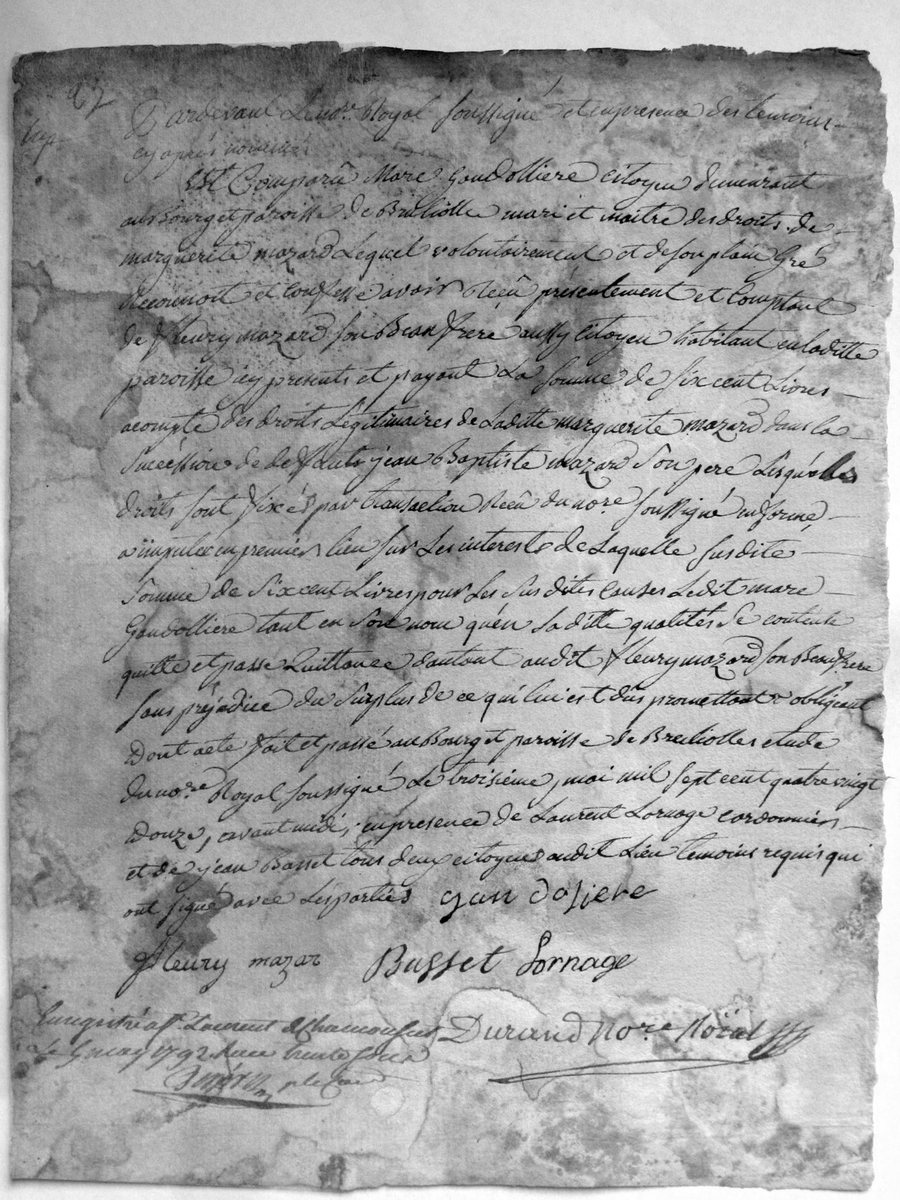 27
Pardevant Le no.re Royal soussigné et en presence des temoins
cy après nommés
Est Comparû Marc Goudolliere citoyen demeurant
au Bourg et paroisse de Brulliolle mari et maitre des droits de
marguerite mazard Lequel volontairement et de son plain Gré
Reconnoit et confesse avoir Reçû présentement et Comptant
de fleury mazard son Beau frere aussy citoyen habitant en laditte
paroisse icy present et payant La somme de six cent Livres
acompte des droits Légitimaires de Laditte marguerite mazard dans la
Succession de defunts jean Baptiste mazard son pere Lesquelles
droits sont fixés par transaction Reçû du no.re soussigné en forme,
a imputer en premier lieu sur Les interests de Laquelle susdite
somme de six cent Livres pour Les Susdites Causes Ledit marc
Goudolliere tant en son nom qu'en sa ditte qualités se contente
quitte et passe Quittance d'autant audit fleury mazard son Beau frere
sans préjudice du surplus de ce qui lui est dûs promettant obligeant
Dont acte fait et passé au Bourg et paroisse de Brulliolles etude
du no.re Royal soussigné Le troisième may mil sept cent quatre vingt
Douze, avant midi, en presence de Laurent Lornage cordonnier
et de jean Basset tous deux citoyens audit Lieu temoins requis qui
ont signé avec Les parties
fleury mazar Basset Lornage
Enregistré a St Laurent de Chamousset Durand No.re Roïal
le 9 may 1792 Reçu trente sous